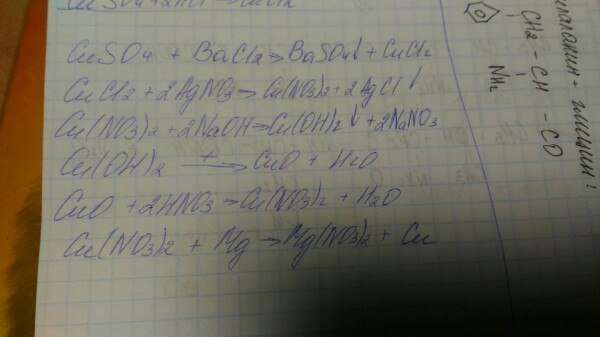 CuSO4 + BaCl2 → BaSO4↓ + CuCl2
CuCl2 + 2AgNO3 → Cu(NO3)2 + 2AgCl↓
Cu(NO3)2 + 2NaOH → Cu(OH)2↓ + 2NaNO3
Cu(OH)2 t→ CuO + H2O
CuO + 2HNO3 → Cu(NO3)2 + H2O
Cu(NO3)2 + Mg → Mg(NO3)2 + Cu
глицин:
CH2 - CH - CO
NH2